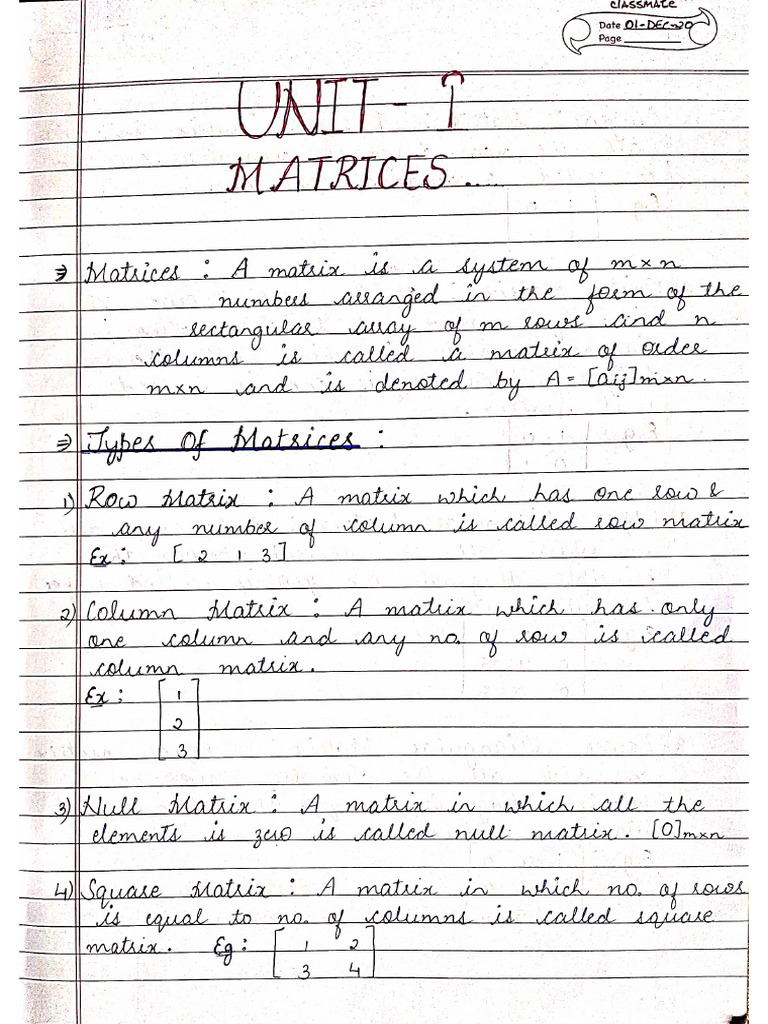 CLASSMATE
Date 01-DEC-20
Page
UNIT - I
MATRICES.....
⇒ Matrices : A matrix is a system of m×n
numbers arranged in the form of the
rectangular array of m rows and n
columns is called a matrix of order
m×n and is denoted by A = [aij]m×n.
⇒ Types Of Matrices :
1) Row Matrix : A matrix which has one row &
any number of column is called row matrix
Ex : [ 2 1 3 ]
2) Column Matrix : A matrix which has only
one column and any no. of row is called
column matrix.
Ex : [ 1
2
3 ]
3) Null Matrix : A matrix in which all the
elements is zero is called null matrix. [0]m×n
4) Square Matrix : A matrix in which no. of rows
is equal to no. of columns is called square
matrix. Eg : [ 1 2
3 4 ]